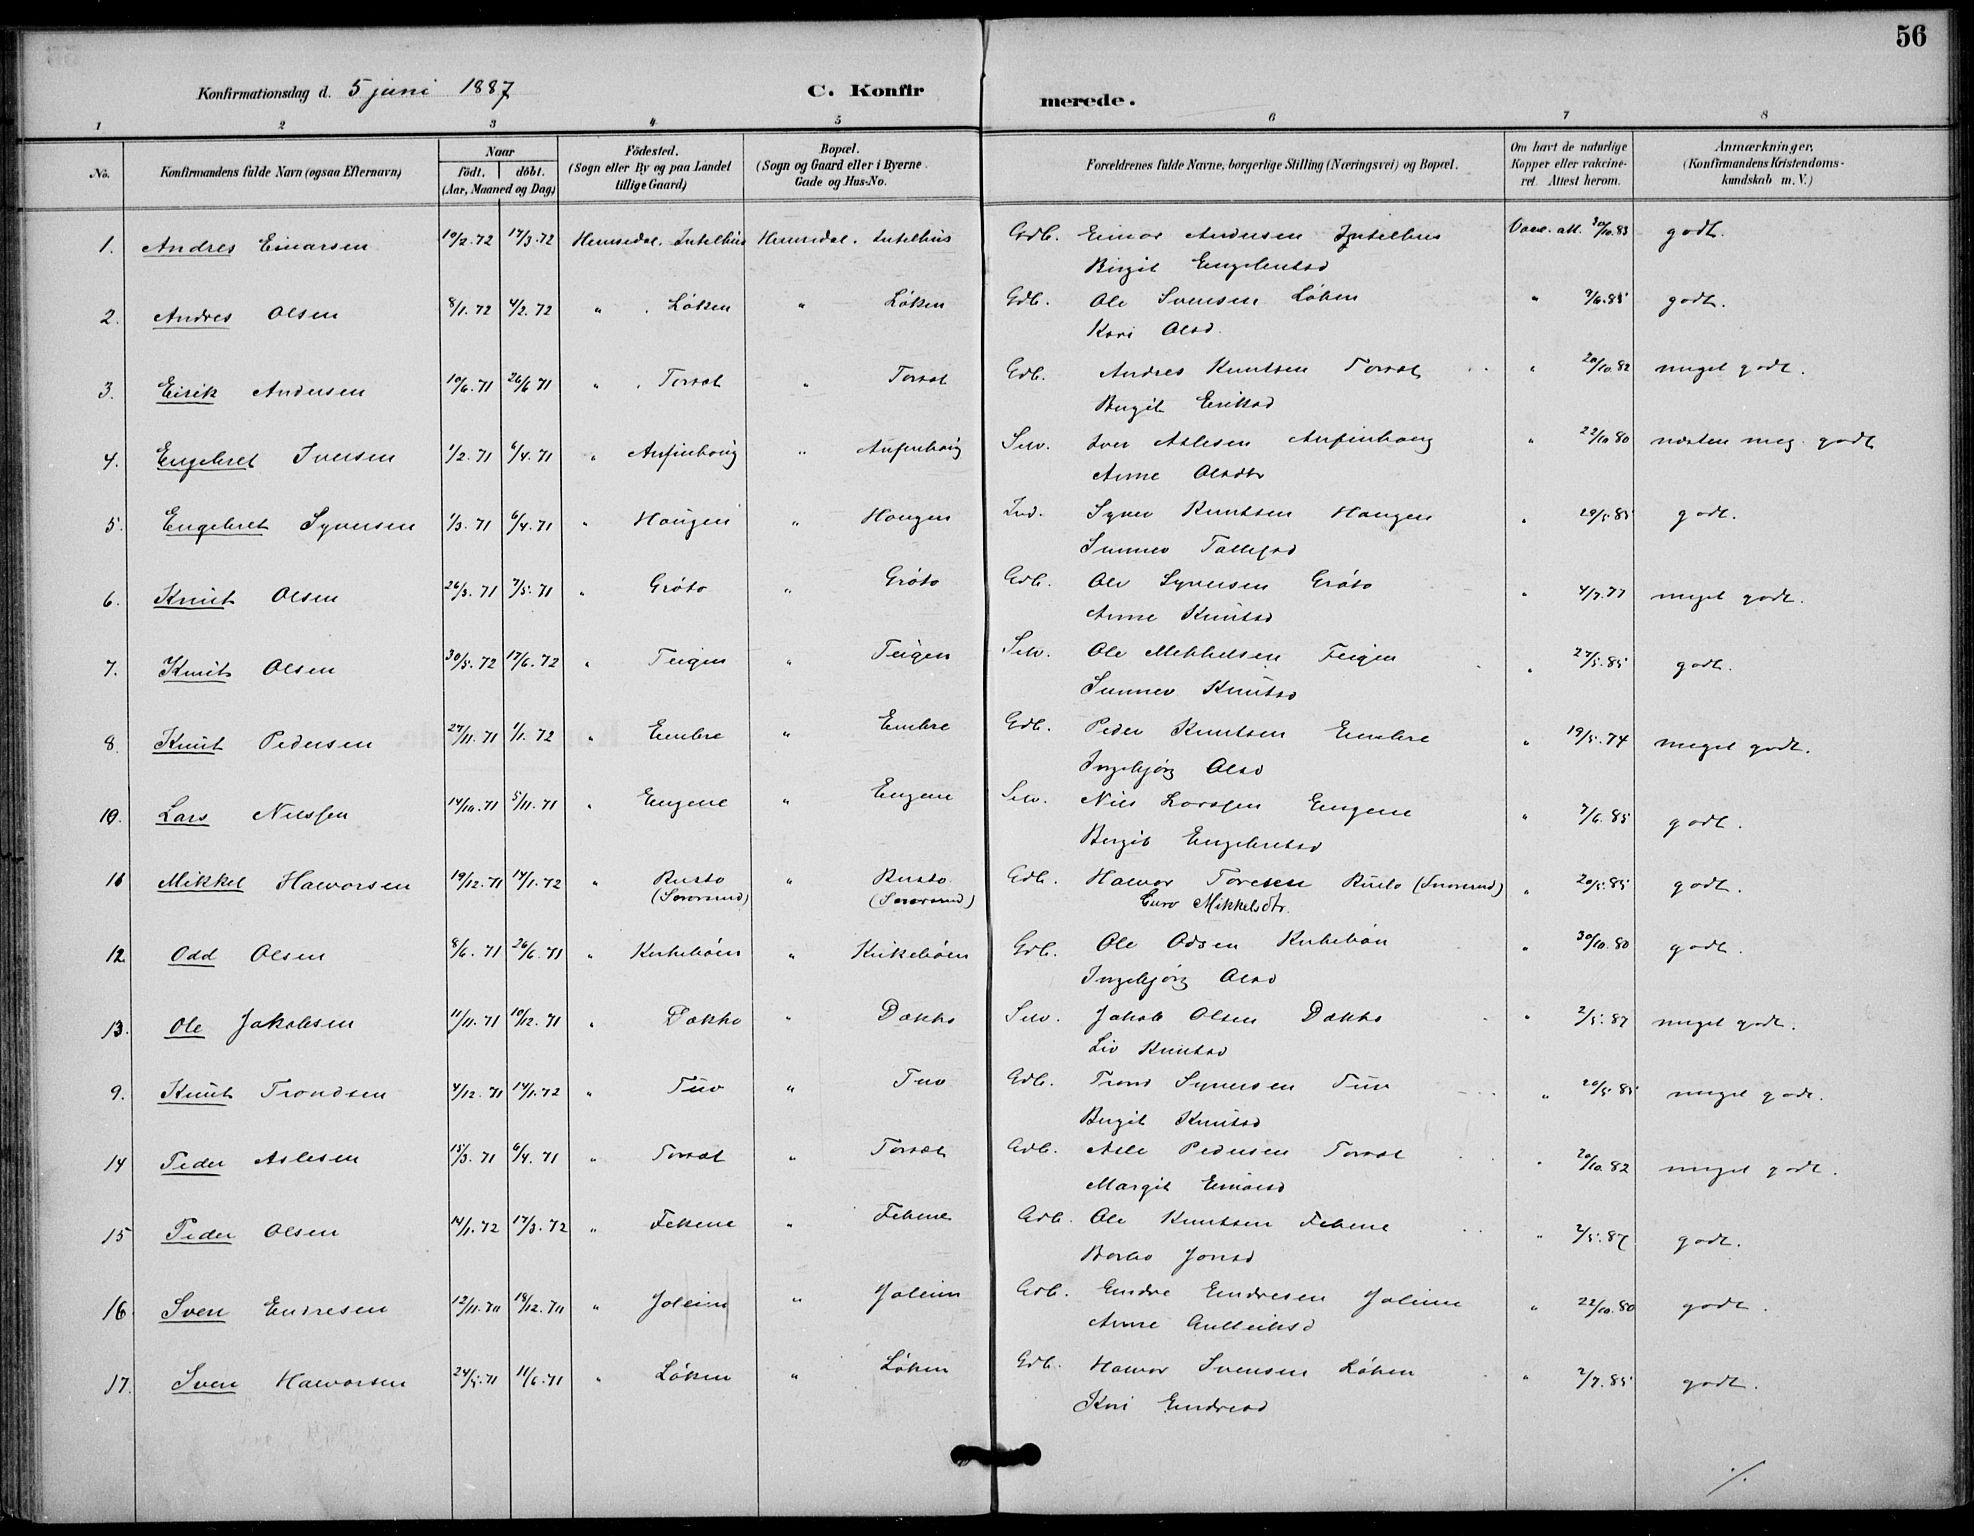 56
Konfirmationsdag d. 5 juni 1887 C. Konfirmerede.
1 2 3 4 5 6 7 8
No. Konfirmandens fulde Navn (ogsaa Efternavn) Naar födt. döbt. (Aar, Maaned og Dag) Födested. (Sogn eller By og paa Landet tillige Gaard) Bopæl. (Sogn og Gaard eller i Byerne Gade og Hus-No. Forældrenes fulde Navne, borgerlige Stilling (Næringsvei) og Bopæl. Om havt de naturlige Kopper eller vakcineret. Attest herom. Anmærkninger. (Konfirmandens Kristendomskundskab m. V.)
1. Andres Einarsen 10/2.72 17/3.72 Hemsedal. Intelhus Hemsedal. Intelhus Gdb. Einar Andersen Intelhus Vacc. att. 30/10.83 godt.
Birgit Engebretsd
2. Andres Olsen 8/1.72 4/2.72 " . Løken " Løken Gdb. Ole Svensen Løken " 7/6.85 godt.
Kari Olsd.
3. Eirik Andersen 10/6.71 26/6 71 " . Torset " Torset Gdb. Andres Knutsen Torset " 20/10.82 meget godt.
Birgit Eriksd
4. Engebret Iversen 1/2.71 6/4.71 " Anfinhoug " Anfinhoug Selv. Iver Aslesen Anfinhoug " 22/10 80 næsten meg. godt
Anne Olsdtr
5. Engebret Syversen 1/3.71 6/4.71 " Haugen " Haugen Ind. Syver Knutsen Haugen " 29/5.85 godt.
Sunnev Tollefsd
6. Knut Olsen 26/3.71 7/5.71 " Grøto " Grøto Gdb. Ole Syversen Grøto " 4/7.77 meget godt.
Anne Knutsd
7. Knut Olsen 30/5.72 17/6.72 " Teigen " Teigen Selv. Ole Mikkelsen Teigen " 27/5.85 godt.
Sunnev Knutsd
8. Knut Pedersen 27/11.71 1/1.72 " Embre " Embre Gdb. Peder Knutsen Embre " 19/5.74 meget godt.
Ingebjørg Olsd
10. Lars Nilssen 14/10.71 5/11.71 " Engene " Engene Selv. Nils Larssen Engene " 7/6.85 godt.
Birgit Engebretsd
11 Mikkel Halvorsen 19/12.71 14/1.72 " Rusto " Rusto Gdb. Halvor Toresen Rusto (Snorsrud) " 20/5.85 godt.
Guro Mikkelsdtr.
12. Odd Olsen 8/6.71 26/6.71 " Kirkebøen " Kirkebøen Gdb. Ole Odsen Kirkebøn " 30/10.80 godt.
Ingebjørg Olsd
13. Ole Jakobsen 11/11.71 10/12.71 " Dokko " Dokko Selv. Jakob Olsen Dokko " 2/5.87 meget godt.
Liv Knutsd
9. Knut Trondsen 4/12.71 14/1.72 " Tuv " Tuv Gdb. Trond Syversen Tuv " 20/5 85 meget godt.
Birgit Knutsd
14 Peder Aslesen 15/3.71 6/4.71 " Torset " Torset Gdb. Asle Pedersen Torset " 20/10.82 meget godt.
Margit Einarsd
15 Peder Olsen 14/1.72 17/3.72 " Fekene " Fekene Gdb. Ole Knutsen Fekene " 2/5.87 godt.
Barbo Jonsd
16 Sven Endresen 12/11.70 18/12.70 " Joleim " Joleim Gdb. Endre Endresen Joleim " 22/10.80 godt.
Anne Gulleiksd
17. Sven Halvorsen 24/5.71 11/6.71 " Løken " Løken Gdb. Halvor Svensen Løken " 2/7.85 godt.
Kari Endresd
./.